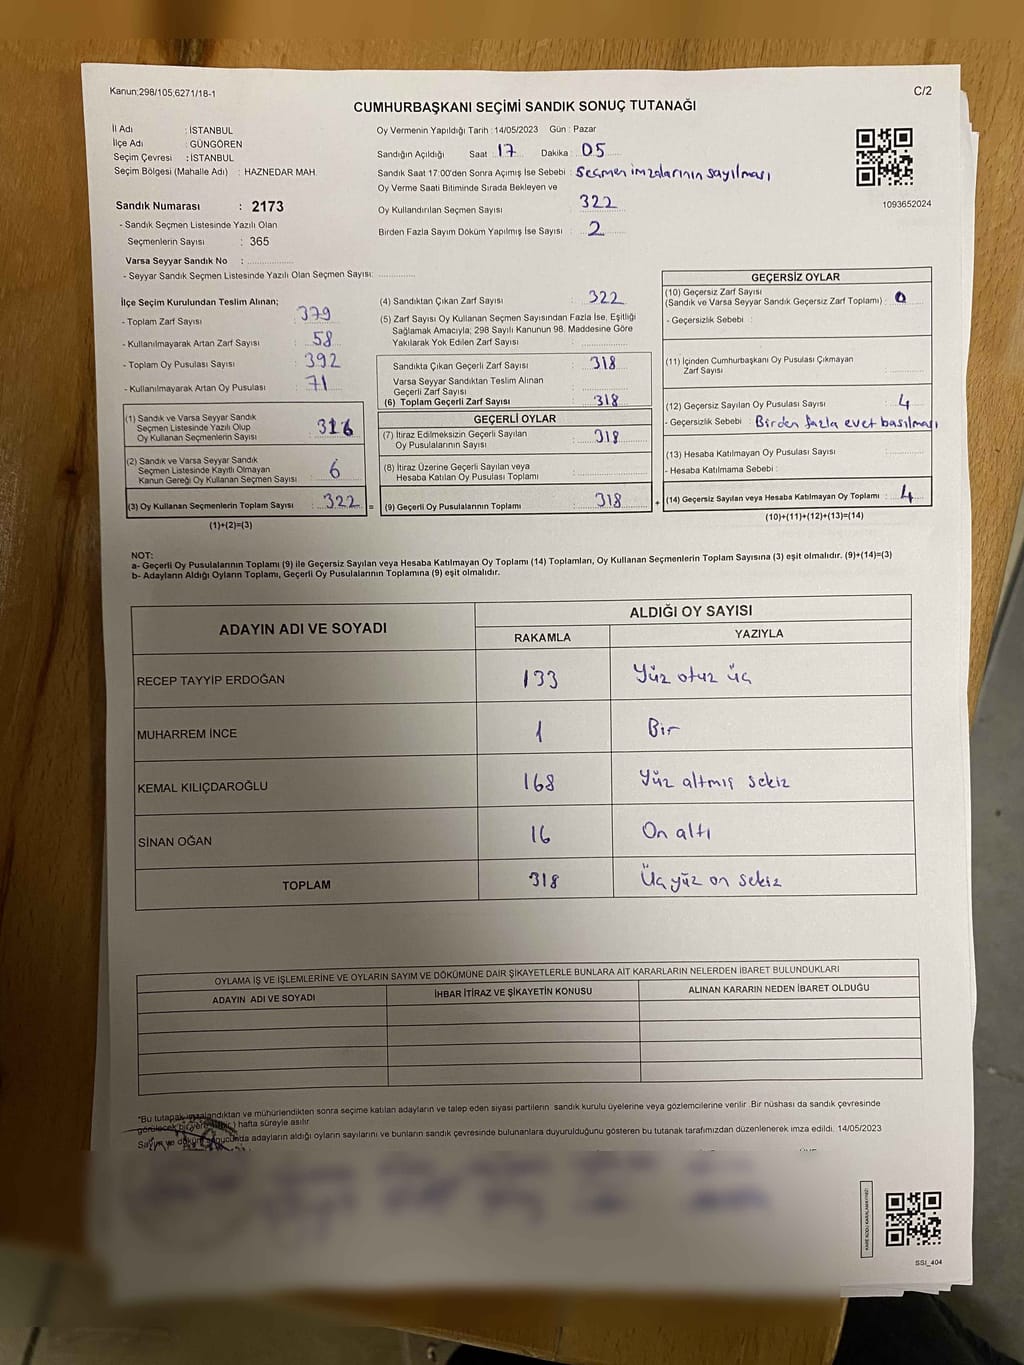 Kanun;298/105,6271/18-1
C/2
CUMHURBAŞKANI SEÇİMİ SANDIK SONUÇ TUTANAĞI
İl Adı : İSTANBUL
İlçe Adı : GÜNGÖREN
Seçim Çevresi : İSTANBUL
Seçim Bölgesi (Mahalle Adı) : HAZNEDAR MAH.
Sandık Numarası : 2173
- Sandık Seçmen Listesinde Yazılı Olan
Seçmenlerin Sayısı : 365
Varsa Seyyar Sandık No :
- Seyyar Sandık Seçmen Listesinde Yazılı Olan Seçmen Sayısı:
Oy Vermenin Yapıldığı Tarih : 14/05/2023 Gün : Pazar
Sandığın Açıldığı Saat 17 Dakika : 05
Sandık Saat 17:00'den Sonra Açımış İse Sebebi : Seçmen imzalarının sayılması
Oy Verme Saati Bitiminde Sırada Bekleyen ve
Oy Kullandırılan Seçmen Sayısı : 322
Birden Fazla Sayım Döküm Yapılmış İse Sayısı : 2
1093652024
İlçe Seçim Kurulundan Teslim Alınan;
- Toplam Zarf Sayısı : 379
- Kullanılmayarak Artan Zarf Sayısı : 58
- Toplam Oy Pusulası Sayısı : 392
- Kullanılmayarak Artan Oy Pusulası : 71
(1) Sandık ve Varsa Seyyar Sandık
Seçmen Listesinde Yazılı Olup
Oy Kullanan Seçmenlerin Sayısı : 316
(2) Sandık ve Varsa Seyyar Sandık
Seçmen Listesinde Kayıtlı Olmayan
Kanun Gereği Oy Kullanan Seçmen Sayısı : 6
(3) Oy Kullanan Seçmenlerin Toplam Sayısı : 322 =
(1)+(2)=(3)
(4) Sandıktan Çıkan Zarf Sayısı : 322
(5) Zarf Sayısı Oy Kullanan Seçmen Sayısından Fazla İse, Eşitliği
Sağlamak Amacıyla; 298 Sayılı Kanunun 98. Maddesine Göre
Yakılarak Yok Edilen Zarf Sayısı :
Sandıkta Çıkan Geçerli Zarf Sayısı : 318
Varsa Seyyar Sandıktan Teslim Alınan
Geçerli Zarf Sayısı :
(6) Toplam Geçerli Zarf Sayısı : 318
GEÇERLİ OYLAR
(7) İtiraz Edilmeksizin Geçerli Sayılan
Oy Pusulalarının Sayısı : 318
(8) İtiraz Üzerine Geçerli Sayılan veya
Hesaba Katılan Oy Pusulası Toplamı :
(9) Geçerli Oy Pusulalarının Toplamı : 318 +
GEÇERSİZ OYLAR
(10) Geçersiz Zarf Sayısı
(Sandık ve Varsa Seyyar Sandık Geçersiz Zarf Toplamı) : 0
- Geçersizlik Sebebi :
(11) İçinden Cumhurbaşkanı Oy Pusulası Çıkmayan
Zarf Sayısı :
(12) Geçersiz Sayılan Oy Pusulası Sayısı : 4
- Geçersizlik Sebebi : Birden fazla evet basılması
(13) Hesaba Katılmayan Oy Pusulası Sayısı :
- Hesaba Katılmama Sebebi :
(14) Geçersiz Sayılan veya Hesaba Katılmayan Oy Toplamı : 4
(10)+(11)+(12)+(13)=(14)
NOT:
a- Geçerli Oy Pusulalarının Toplamı (9) ile Geçersiz Sayılan veya Hesaba Katılmayan Oy Toplamı (14) Toplamları, Oy Kullanan Seçmenlerin Toplam Sayısına (3) eşit olmalıdır. (9)+(14)=(3)
b- Adayların Aldığı Oyların Toplamı, Geçerli Oy Pusulalarının Toplamına (9) eşit olmalıdır.
ADAYIN ADI VE SOYADI ALDIĞI OY SAYISI
RAKAMLA YAZIYLA
RECEP TAYYİP ERDOĞAN 133 Yüz otuz üç
MUHARREM İNCE 1 Bir
KEMAL KILIÇDAROĞLU 168 Yüz altmış sekiz
SİNAN OĞAN 16 On altı
TOPLAM 318 Üç yüz on sekiz
OYLAMA İŞ VE İŞLEMLERİNE VE OYLARIN SAYIM VE DÖKÜMÜNE DAİR ŞİKAYETLERLE BUNLARA AİT KARARLARIN NELERDEN İBARET BULUNDUKLARI
ADAYIN ADI VE SOYADI İHBAR İTİRAZ VE ŞİKAYETİN KONUSU ALINAN KARARIN NEDEN İBARET OLDUĞU
"Bu tutanak imzalandıktan ve mühürlendikten sonra seçime katılan adayların ve talep eden siyasi partilerin sandık kurulu üyelerine veya gözlemcilerine verilir .Bir nüshası da sandık çevresinde
görülecek bir yere hafta süreyle asılır
Sayım ve döküm sonucunda adayların aldığı oyların sayılarını ve bunların sandık çevresinde bulunanlara duyurulduğunu gösteren bu tutanak tarafımızdan düzenlenerek imza edildi. 14/05/2023
SSI_404